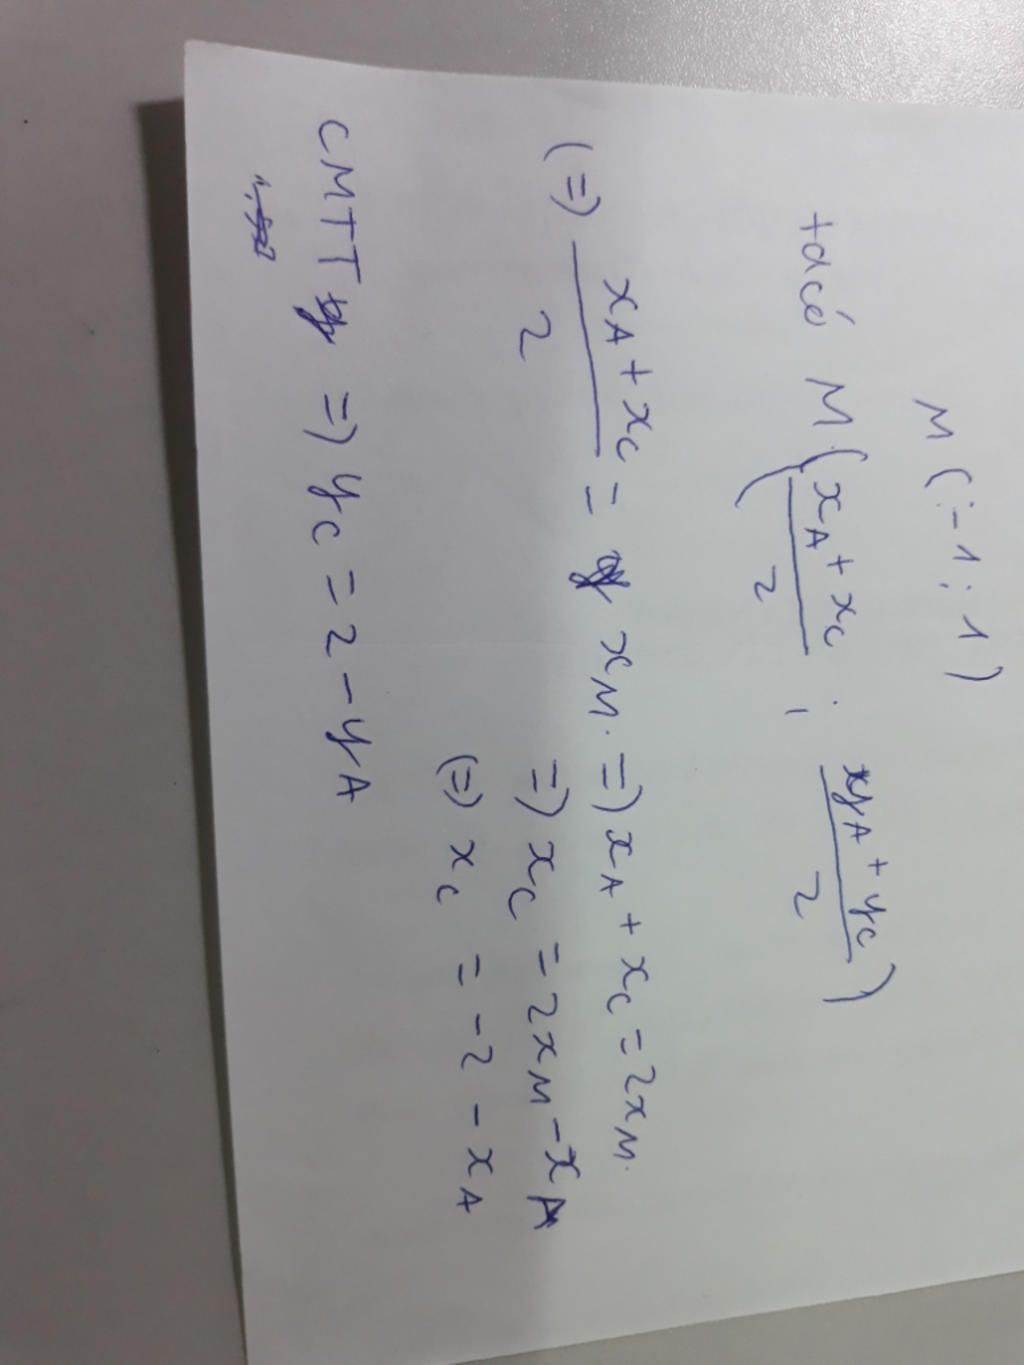 M (-1 ; 1)
ta có M ( (x_A + x_C)/2 ; (y_A + y_C)/2 )
(=) (x_A + x_C)/2 = x_M. =) x_A + x_C = 2x_M.
=) x_C = 2x_M - x_A
(=) x_C = -2 - x_A
CMTT =) y_C = 2 - y_A